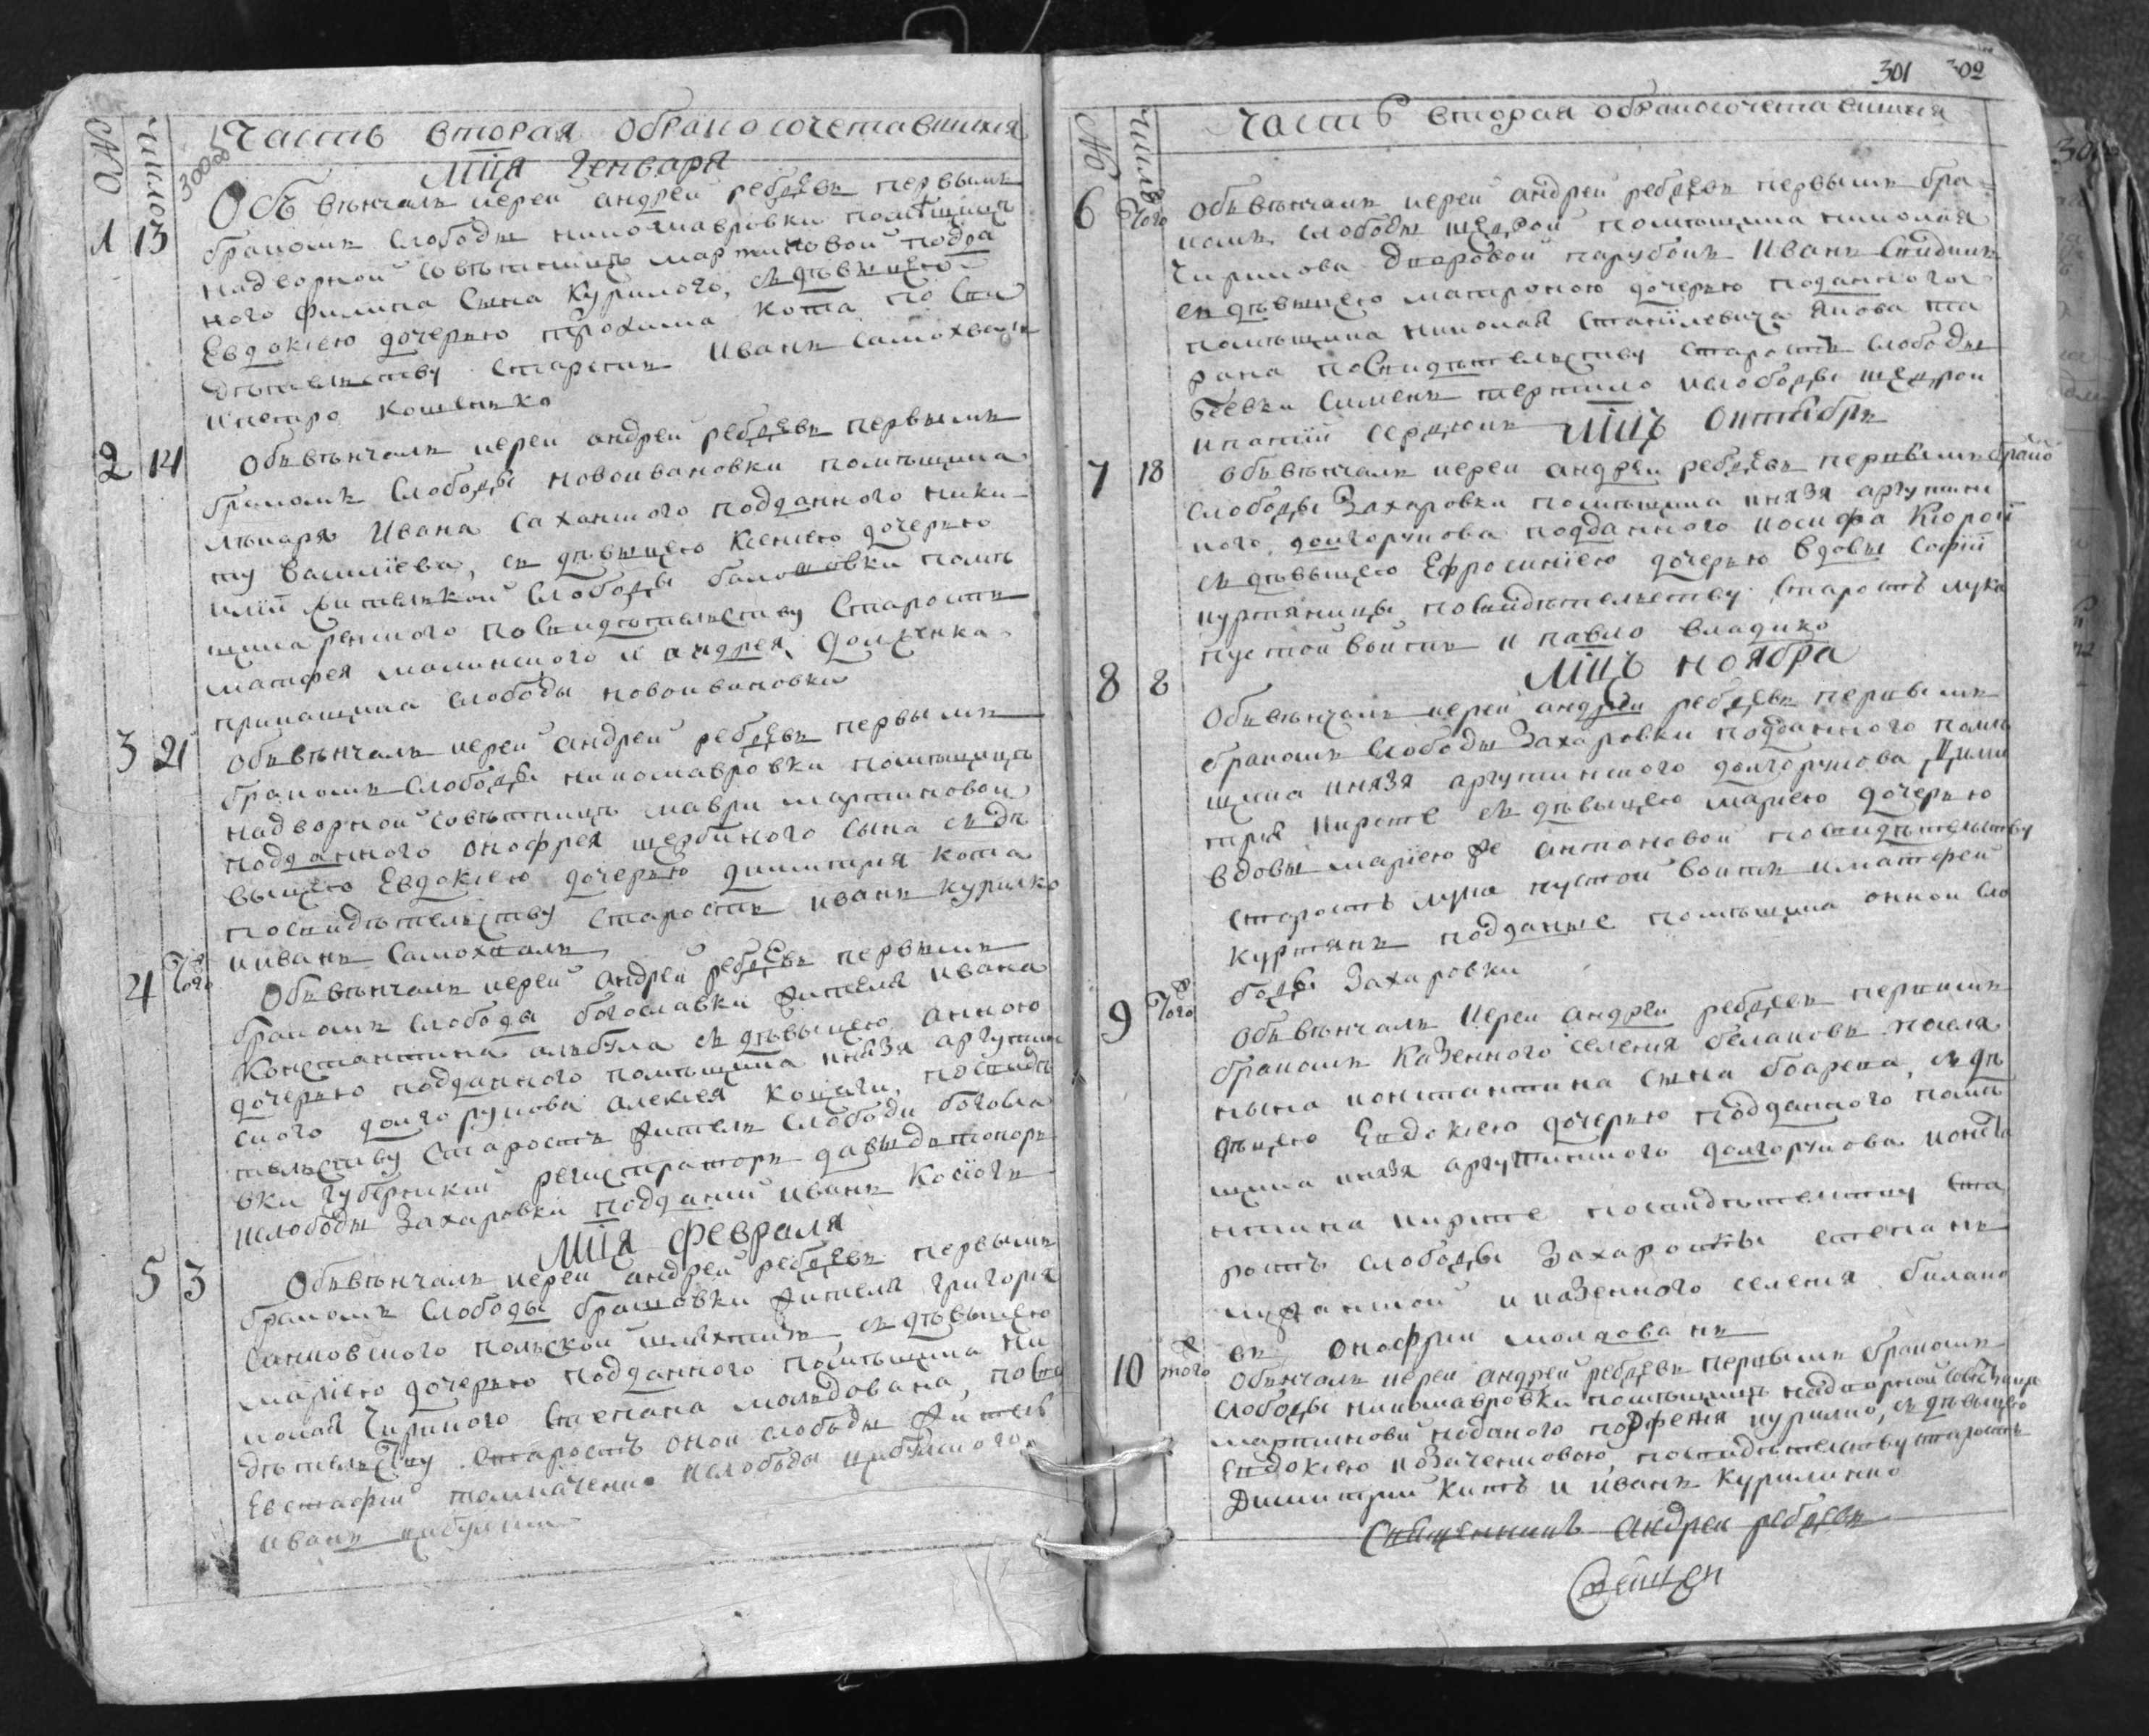 300об
Часть вторая обракосочетавшихся
№ число
Мця Генваря
1 13 Объ вѣнчалъ иереи андреи ребдевъ первымъ
бракомъ Слободы николавровки помѣщицы
надворной совѣтницы мартиновой подда
ного филипа Сына Курилого, съ дѣвицею
Евдокиею дочерью трохима кота по Сви
дѣтельству Старости Иванъ Самохвалъ
ипетро кошенько
2 14 Объвѣнчалъ иереи андреи ребдевъ первымъ
бракомъ Слободы новоивановки помѣщика
лѣкаря Ивана Сахацкого подданного ники
ту Василиева, съ дѣвицею Ксениею дочерью
Слободы помѣ
щика посвидѣтельству Старости
матфея малинского и андрея
прикащика слободы новоивановки
3 21 Объвѣнчалъ иереи андреи ребдевъ первымъ
бракомъ Слободы николавровки помѣщицы
надворной совѣтницы маври мартиновой
подданного онофрея щербиного Сына съ дѣ
вицею Евдокиею дочерью димитрия кота
посвидѣтельству Старости иванъ курилко
ииванъ Самохвалъ
4 Того Объвѣнчалъ иереи андреи ребдевъ первымъ
бракомъ слободы богославки жителя ивана
Константина съ дѣвицею анною
дочерью подданного помѣщика князя аргутин
ского долгорукова алексея посвидѣ
тельству Старости жители Слободи богосла
вки губернский регистраторъ давыдъ
ислободы Захаровки подданий иванъ
Мця Февраля
5 3 Объвѣнчалъ иереи андреи ребдевъ первымъ
бракомъ Слободы жителя григория
польской съ дѣвицею
мариею дочерью подданного помѣщика ни
колая Чиркого Степана молдована, посви
дѣтельству Старость оной слободы житель
Евстафий ислободы
иванъ
301 302
№ число
Часть вторая обракосочетавшихся
6 Того Объвѣнчалъ иереи андреи ребдевъ первымъ бра=
комъ, слободы щедрой помѣщика николая
Чирикова дворовой парубокъ Иванъ
съ дѣвицею матроною дочерью поданного
помѣщика николая якова та
рана посвидѣтельству старости слободы
Сименъ ислободы щедрой
Мцъ октября
7 18 объвѣнчалъ иереи андреи ребдевъ первымъ брако
слободы Захаровки помѣщика князя аргутин
кого долгорукова подданного иосифа
съ дѣвицею Ефросиниею дочерью вдовы Софий
посвидѣтельству старость лука
пустой войтъ и павло владико
Мцъ ноября
8 8 Объвѣнчалъ иереи андреи ребдевъ первымъ
бракомъ Слободы Захаровки подданного помѣ
щика князя аргутинского долгорукова Дими
трия съ дѣвицею мариею дочерью
вдовы антоновой посвидѣтельству
старость лука пустой войтъ иматфей
куртянъ подданые помѣщика онной сло
боды Захаровки
9 Того Объвѣнчалъ Иереи андреи ребдевъ первымъ
бракомъ Казенного селения белаковъ
константина Сына съ дѣ
вицею Евдокиею дочерью подданного помѣ
щика князя аргутинского долгорукова конста
нтина посвидѣтельству ста
рость слободы Захаровки степанъ
и казенного селения
въ онофрий молдованъ
10 того Объвнчалъ иереи андреи ребдевъ первымъ бракомъ
слободы николавровки помѣщицы надворной совѣтници
мартиновй поданого съ дѣвицею
Евдокиею посвидѣтельству старость
Димитрий Китъ и иванъ Куриленко
Священникъ андреи ребдевъ